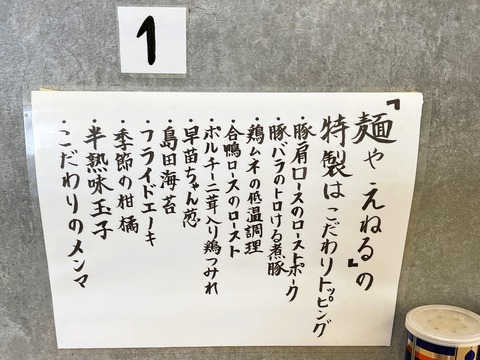 1
『麺や えねる』の
特製はこだわりトッピング
・豚肩ロースのローストポーク
・豚バラのトロける煮豚
・鶏ムネの低温調理
・合鴨ロースのロースト
・ポルチーニ茸入り鶏つみれ
・早苗ちゃん葱
・島田海苔
・フライドエノキ
・季節の柑橘
・半熟味玉子
・こだわりのメンマ